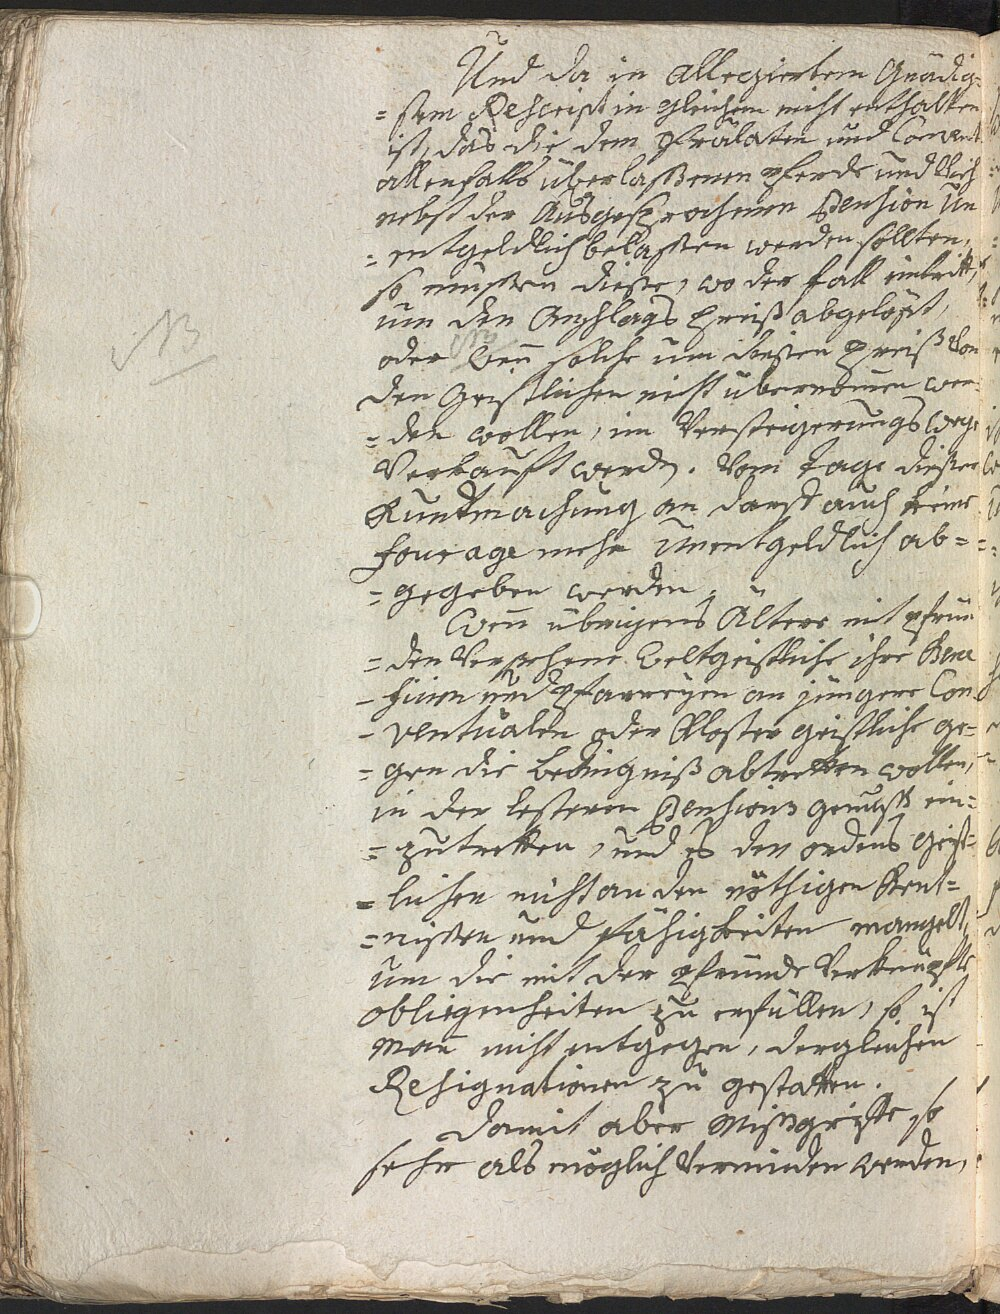 Und da in allegirtem Gnädig-
=stem Rescript in gleichem nicht enthalten
ist, das die dem Prälaten und Convent
allenfalls überlaßenen Pferde und Vieh
nebst der Ausgesprochenen Pension Un
=entgeldlich belaßen werden sollten,
so müssen diese, wo der fall eintritt,
um den Anschlags Preiß abgelößt,
oder wen̄ solche um diesen Preiß von
den Geistlichen nicht übernom̄en wer
=den wollen, im Versteigerungs Wege
Verkauft werden. Vom Tage dieser
Kundmachung an darf auch keine
fourage mehr Unentgeldlich ab=
=gegeben werden.
NB
Wen̄ übrigens Ältere mit Pfrün
=den Versehene Weltgeistliche ihre Bene
-ficien und Pfarreyen an jüngere Con
-ventualen oder Kloster geistliche ge=
=gen die bedingniß abtretten wollen,
in der lesteren Pensions genuß ein=
=zutretten, und es den ordens Geist=
=lichen nicht an den nöthigen Kent=
=nissen und fähigkeiten mangelt,
um die mit der Pfründe Verknüpfte
obliegenheiten zu erfüllen, so ist
man̄ nicht entgegen, dergleichen
Resignationen zu gestatten.
Damit aber Mißgriffe so
sehr als möglich Vermieden werden,